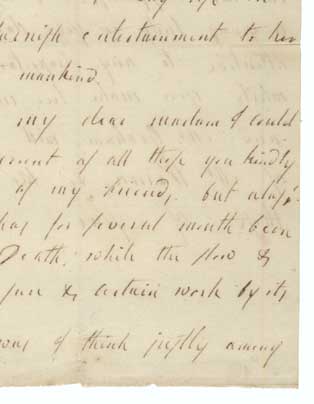 furnish entertainment to her
mankind.
my dear madam I could
of all those you kindly
of my friends, but alas!
has for several month been
Death, while the slow &
sure & certain work by its
I think justly among